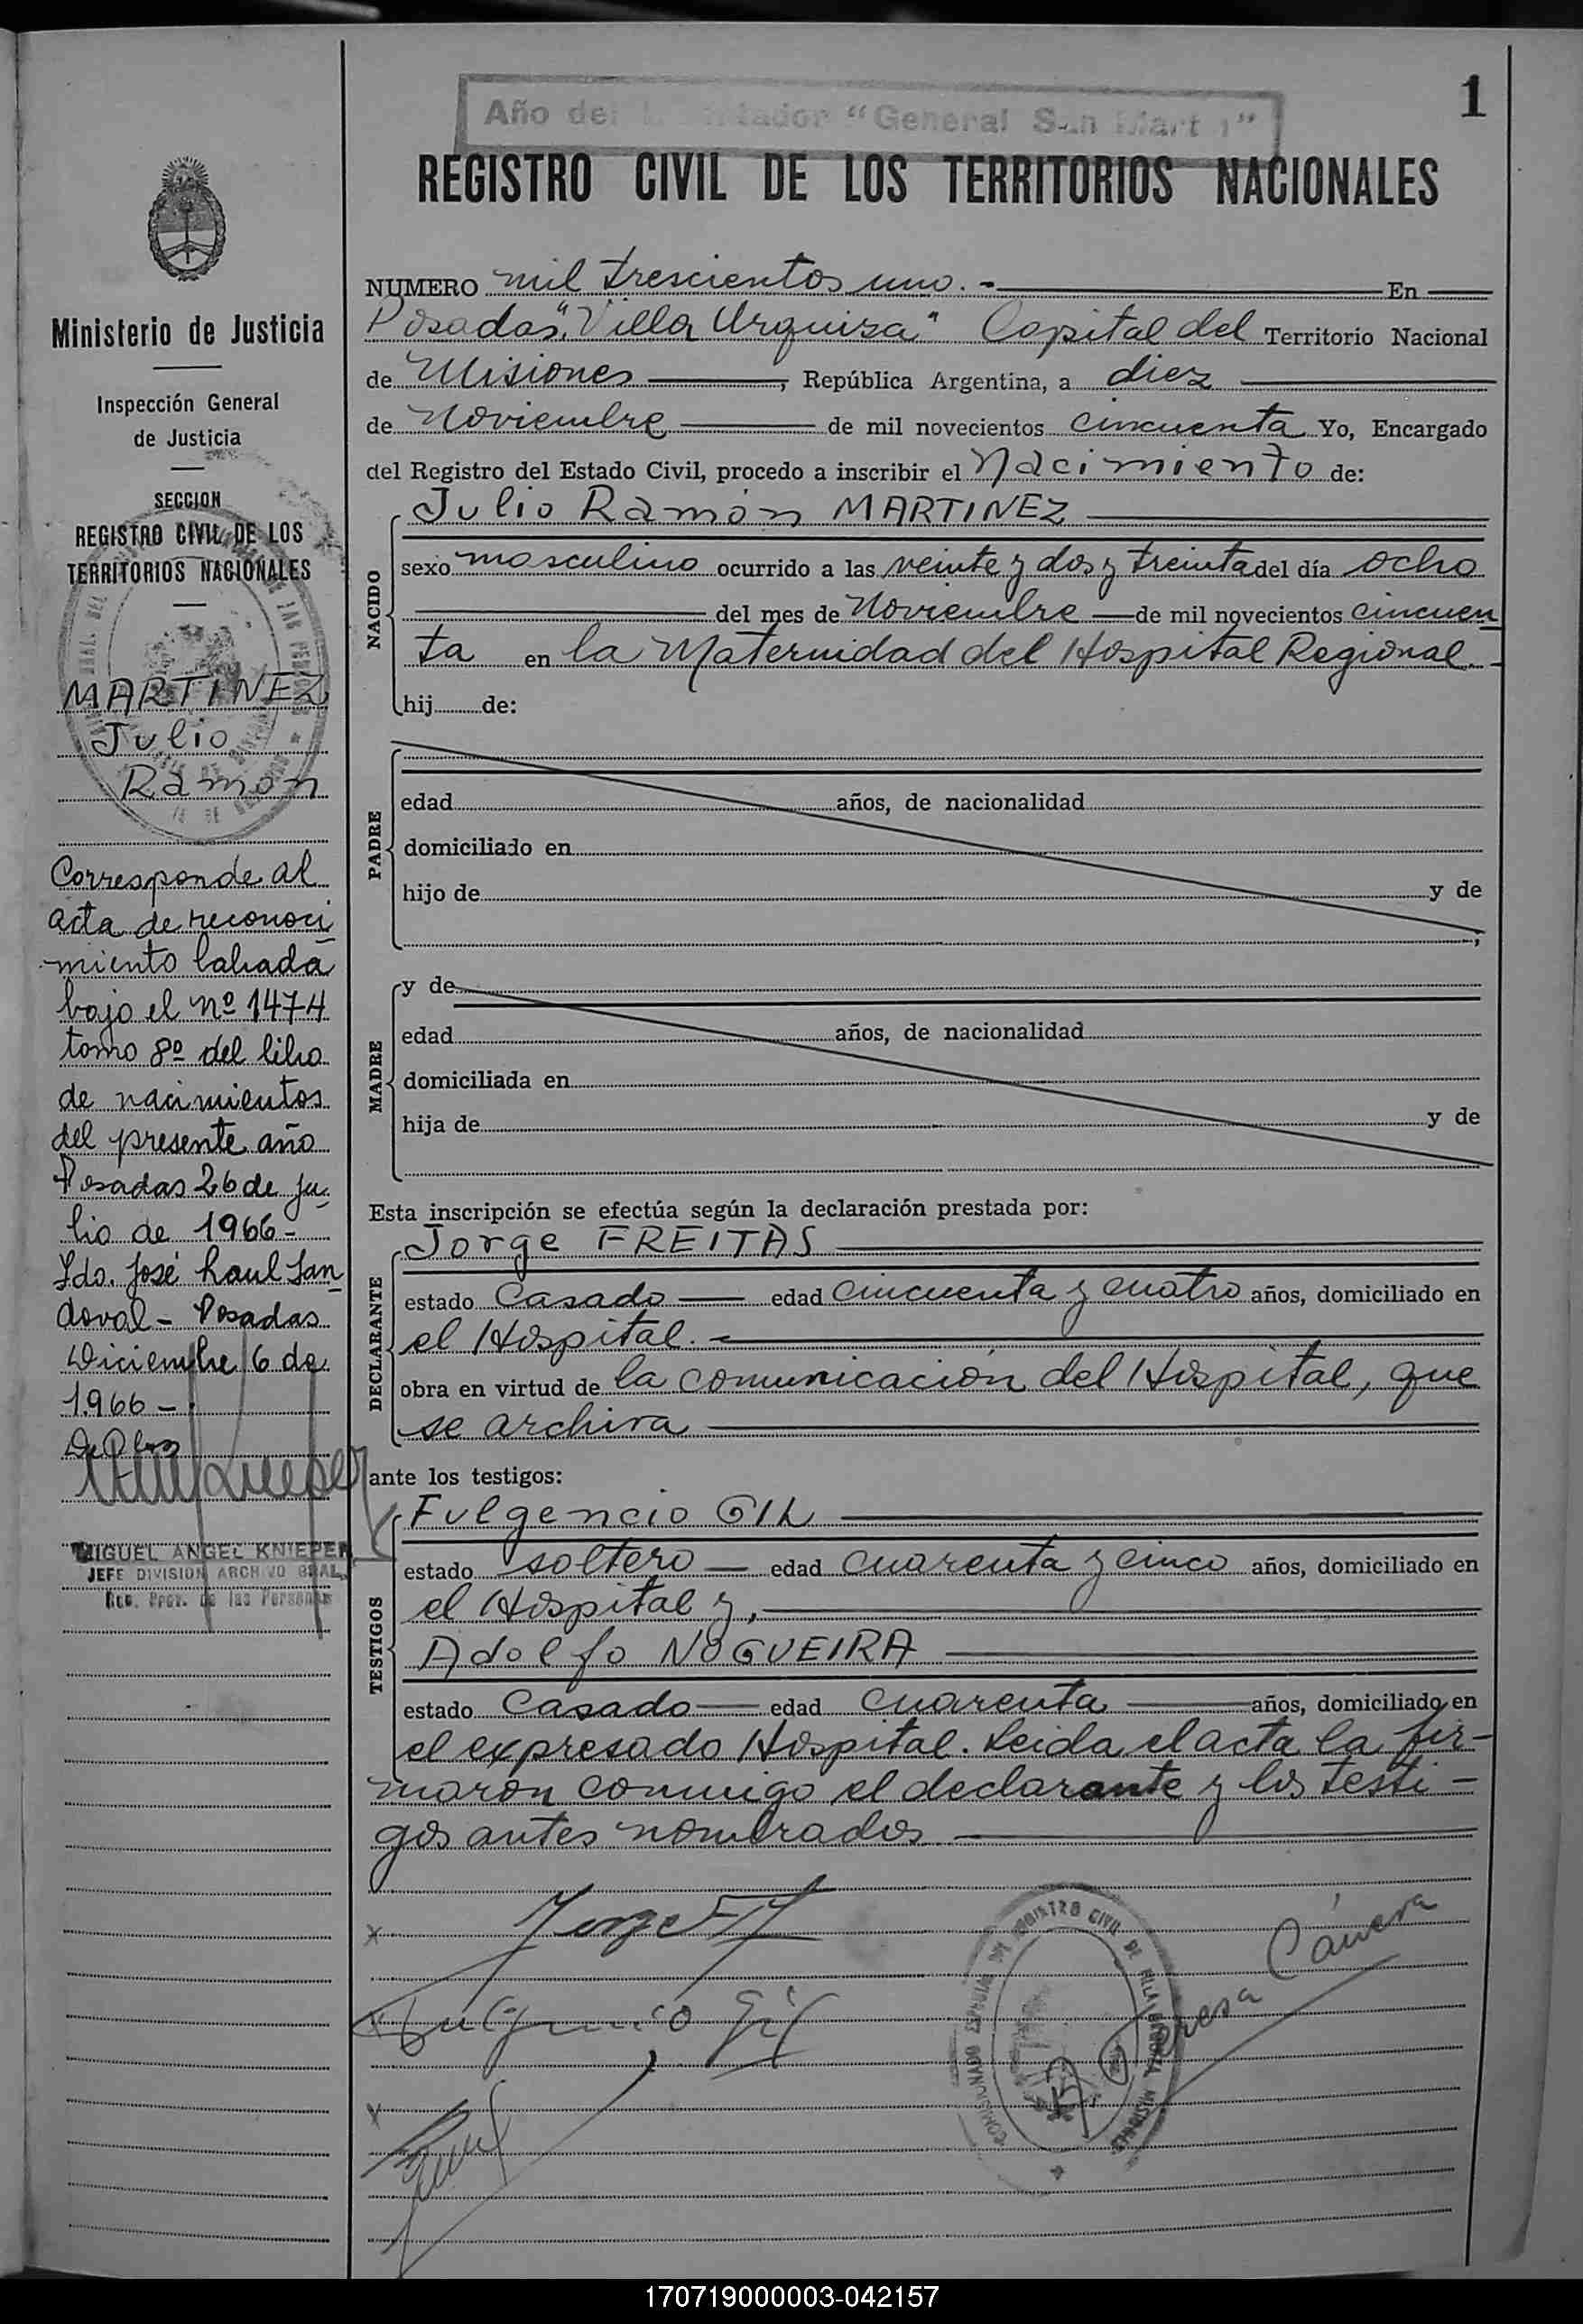 1
Año del Libertador "General San Martín"
REGISTRO CIVIL DE LOS TERRITORIOS NACIONALES
Ministerio de Justicia
Inspección General
de Justicia
SECCION
REGISTRO CIVIL DE LOS
TERRITORIOS NACIONALES
MARTINEZ
Julio
Ramón
Corresponde al
acta de reconoci
miento labrada
bajo el nº 1474
tomo 8º del libro
de nacimientos
del presente año
Posadas 26 de ju
lio de 1966-
Fdo. José Raul San
doval - Posadas
Diciembre 6 de
1966 -
MIGUEL ANGEL KNIEPER
JEFE DIVISION ARCHIVO GRAL.
Reg. Prov. de las Personas
NUMERO mil trescientos uno. - En
Posadas "Villa Urquiza" Capital del Territorio Nacional
de Misiones, República Argentina, a diez
de Noviembre de mil novecientos cincuenta Yo, Encargado
del Registro del Estado Civil, procedo a inscribir el Nacimiento de:
NACIDO
Julio Ramón MARTINEZ
sexo masculino ocurrido a las veinte y dos y treinta del día ocho
del mes de Noviembre de mil novecientos cincuen
ta en la Maternidad del Hospital Regional.-
hij de:
PADRE
edad años, de nacionalidad
domiciliado en
hijo de y de
;
MADRE
y de
edad años, de nacionalidad
domiciliada en
hija de y de
Esta inscripción se efectúa según la declaración prestada por:
DECLARANTE
Jorge FREITAS
estado Casado edad cincuenta y cuatro años, domiciliado en
el Hospital.-
obra en virtud de la comunicación del Hospital, que
se archiva
ante los testigos:
TESTIGOS
Fulgencio GIL
estado soltero edad cuarenta y cinco años, domiciliado en
el Hospital y,
Adolfo NOGUEIRA
estado Casado edad cuarenta años, domiciliado en
el expresado Hospital. Leida el acta la fir-
maron conmigo el declarante y los testi-
gos antes nombrados
x Jorge
x Fulgencio Gil
x
REGISTRO CIVIL DE
Teresa Cánera
170719000003-042157